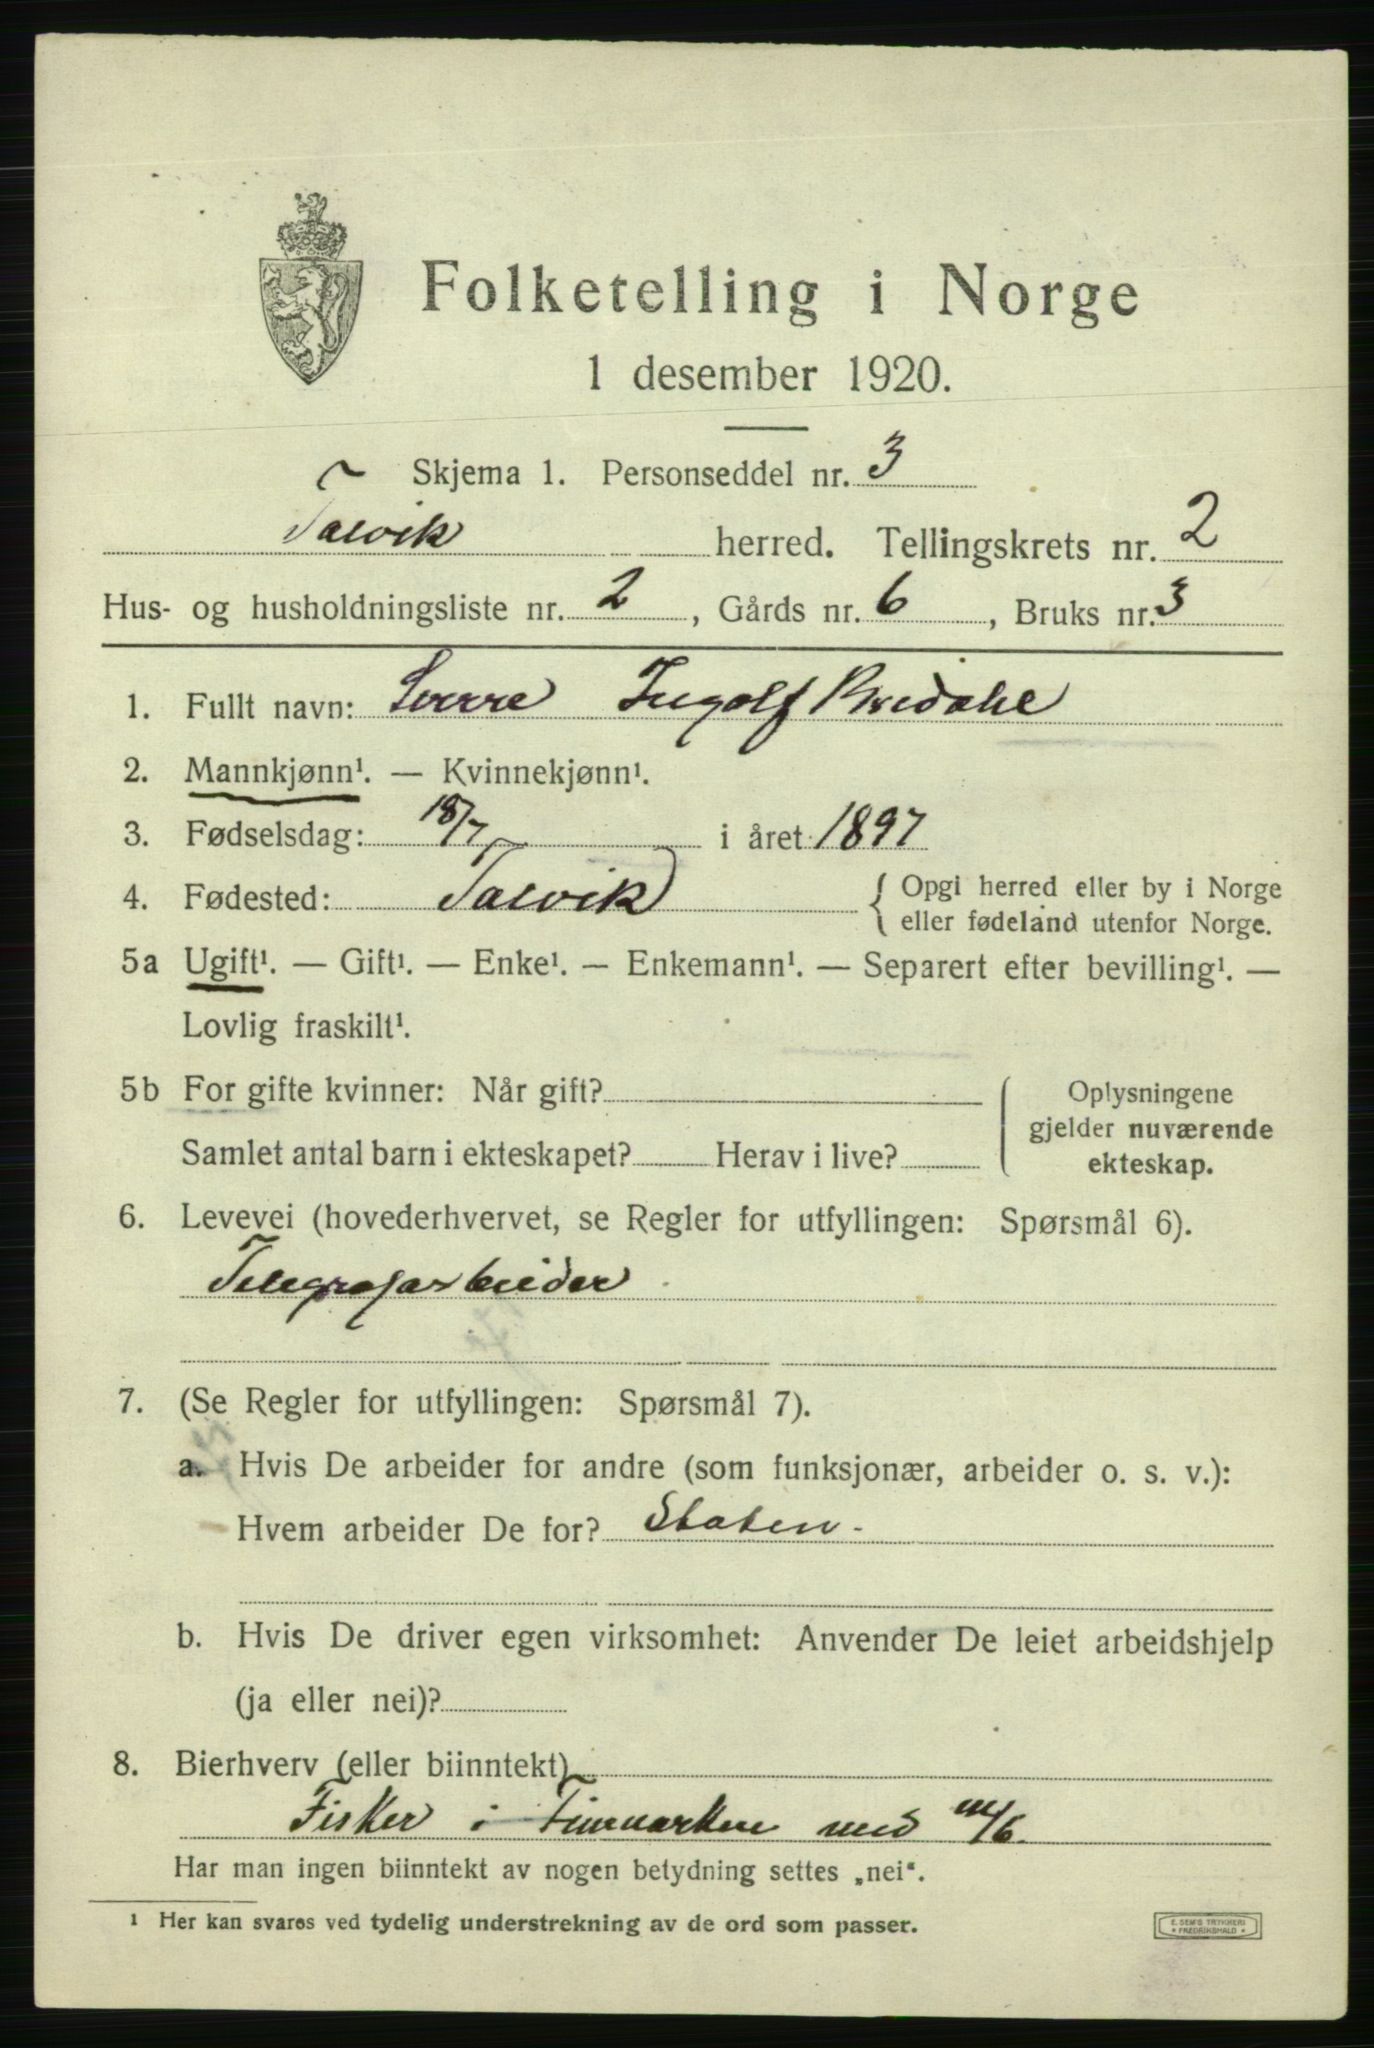 Folketelling i Norge
1 desember 1920.
Skjema 1. Personseddel nr. 3
Talvik herred. Tellingskrets nr. 2
Hus- og husholdningsliste nr. 2, Gårds nr. 6, Bruks nr. 3
1. Fullt navn: Sverre Ingolf Bredahl
2. Mannkjønn¹. — Kvinnekjønn¹.
3. Fødselsdag: 18/7 i året 1897
4. Fødested: Talvik { Opgi herred eller by i Norge
eller fødeland utenfor Norge.
5a Ugift¹. — Gift¹. — Enke¹. — Enkemann¹. — Separert efter bevilling¹. —
Lovlig fraskilt¹.
5b For gifte kvinner: Når gift?
Samlet antal barn i ekteskapet? Herav i live?
Oplysningene
gjelder nuværende
ekteskap.
6. Levevei (hovederhvervet, se Regler for utfyllingen: Spørsmål 6).
Telegrafarbeider
7. (Se Regler for utfyllingen: Spørsmål 7).
a. Hvis De arbeider for andre (som funksjonær, arbeider o. s. v.):
Hvem arbeider De for? Staten.
b. Hvis De driver egen virksomhet: Anvender De leiet arbeidshjelp
(ja eller nei)?
8. Bierhverv (eller biinntekt)
Fisker i Finmarken med m/6
Har man ingen biinntekt av nogen betydning settes „nei“.
1 Her kan svares ved tydelig understrekning av de ord som passer.
E. SEM'S TRYKKERI
* FREDRIKSHALD *